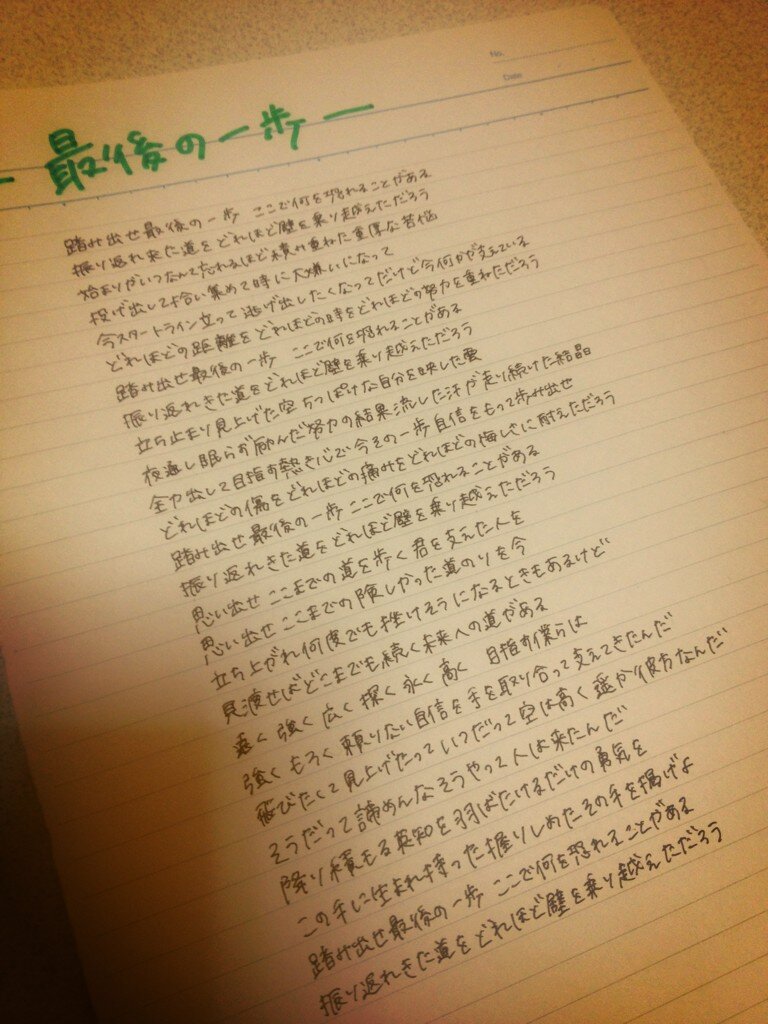 No.
Date
- 最後の一歩 -
踏み出せ最後の一歩 ここで何を恐れることがある
振り返れ来た道をどれほど壁を乗り越えただろう
始まりがいつなんて忘れるほど積み重ねた重厚な苦悩
投げ出して拾い集めて時に大嫌いになって
今スタートライン立って逃げ出したくなってだけど今何かが支えている
どれほどの距離をどれほどの時をどれほどの努力を重ねただろう
踏み出せ最後の一歩 ここで何を恐れることがある
振り返れきた道をどれほど壁を乗り越えただろう
立ち止まり見上げた空ちっぽけな自分を映した雲
夜通し眠らず励んだ努力の結果流した汗が走り続けた結晶
全力出して目指す熱き心で今その一歩自信をもって歩み出せ
どれほどの傷をどれほどの痛みをどれほどの悔しさに耐えただろう
踏み出せ最後の一歩 ここで何を恐れることがある
振り返れきた道をどれほど壁を乗り越えただろう
思い出せ ここまでの道を歩く君を支えた人を
思い出せ ここまでの険しかった道のりを今
立ち上がれ何度でも挫けそうになるときもあるけど
見渡せばどこまでも続く未来への道がある
遠く 強く 広く 深く 永く 高く 目指す僕らは
強く もろく 頼りない自信を手を取り合って支えてきたんだ
飛びたくて見上げたっていつだって空は高く遥か彼方なんだ
そうだって諦めんなそうやって人は来たんだ
降り積もる英知を羽ばたけるだけの勇気を
この手に生まれ持った握りしめたその手を掲げよ
踏み出せ最後の一歩 ここで何を恐れることがある
振り返れきた道をどれほど壁を乗り越えただろう